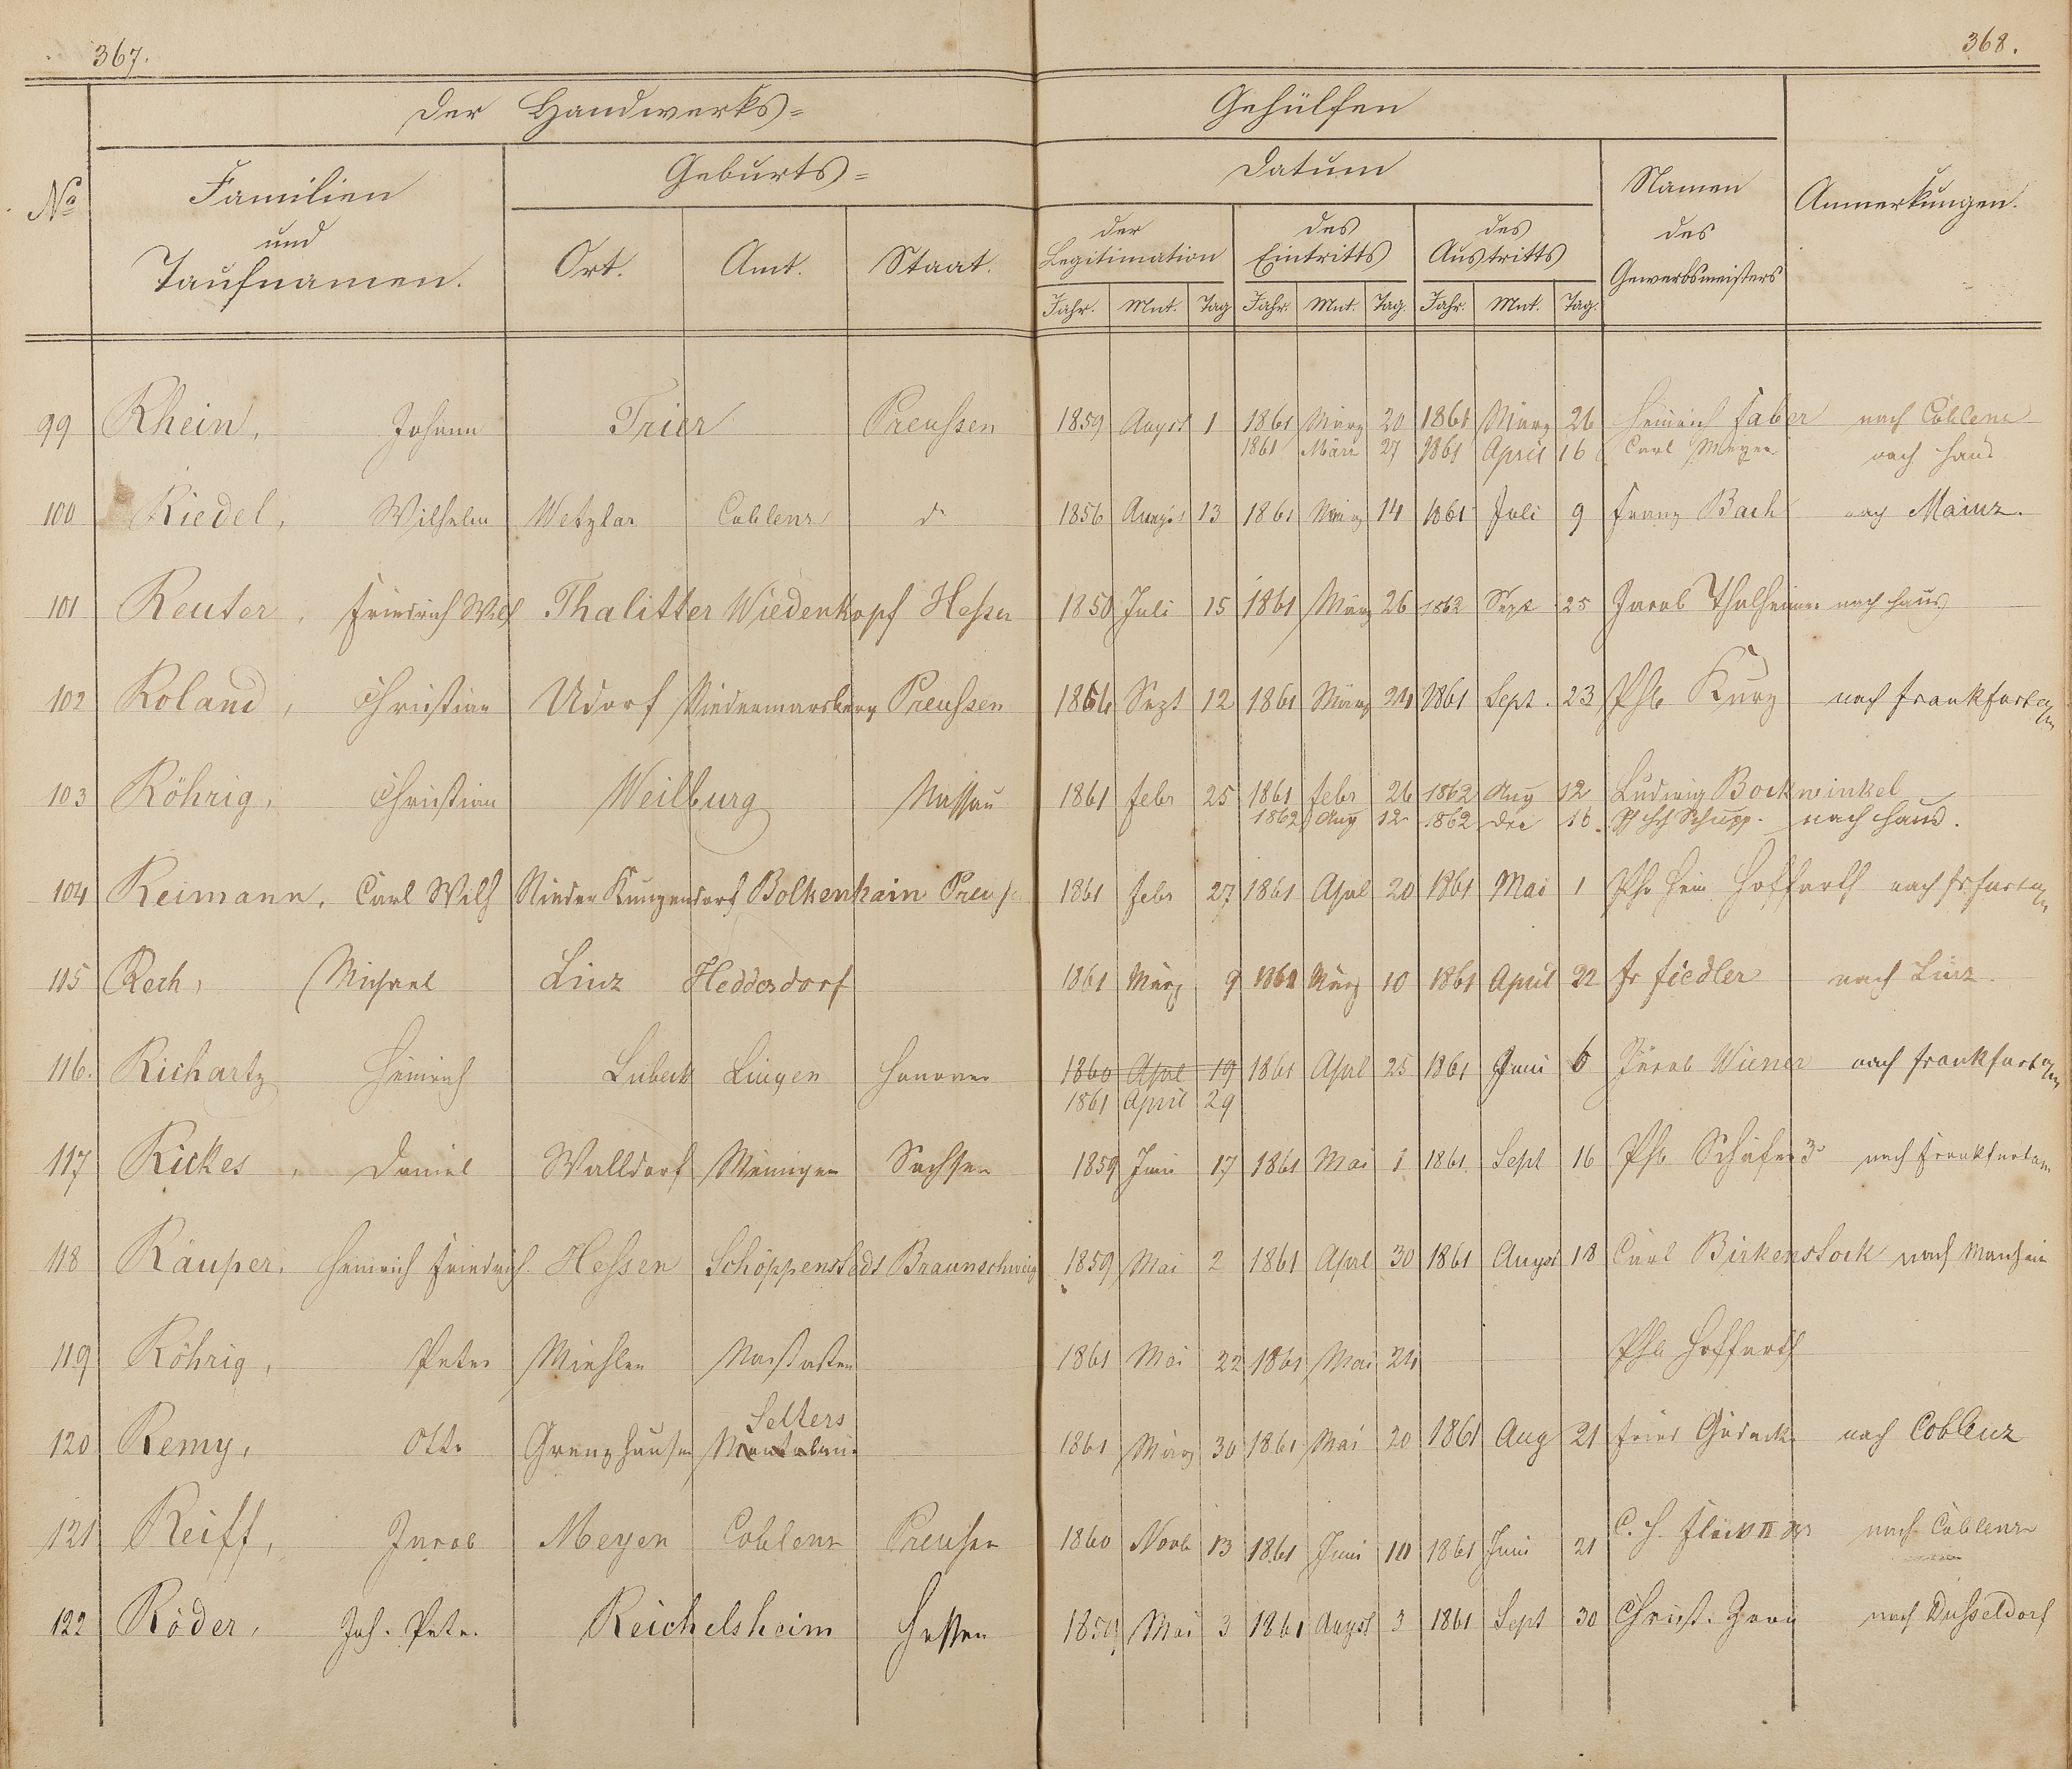 367.
368.
Der Handwerks=
Gehülfen
No
Familien
und
Taufnamen.
Geburts=
Ort.
Amt.
Staat.
Datum
der
Legitimation
des
Eintritts
des
Austritts
Jahr. Mnt. Tag Jahr. Mnt. Tag. Jahr. Mnt. Tag.
Namen
des
Gewerbsmeisters
Anmerkungen.
99 Rhein, Johann Trier Preußen 1859 August 1 1861 März 20 1861 März 26 Heinrich Faber nach Coblenz
1861 März 27 1861 April 16 Carl Meyer nach Haus
100 Riedel, Wilhelm Wetzlar Coblenz do 1856 August 13 1861 März 14 1861 Juli 9 Franz Bach nach Mainz.
101 Reuter, Friedrich Wilh Thalitter Wiedenkopf Hessen 1850 Juli 15 1861 März 26 1862 Sept 25 Jacob Thalheimer nach Haus
102 Roland, Christian Udorf Niedermarsberg Preußen Sept 12 1861 März 24 1861 Sept. 23 Phil Kurz nach Frankfurt a/m
103 Röhrig, Christian Weilburg Nassau 1861 Febr 25 1861 Febr 26 1862 Aug 12 Ludwig Bockwinkel
1862 Aug 12 1862 Dec 16 Schupp. nach Haus.
104 Reimann, Carl Wilh Nieder Kunzendorf Bolkenhain Preuß 1861 Febr 27 1861 Aprl 20 1861 Mai 1 Phl Hein Hoffarth nach Frfurt a/m
115 Rech, Michael Linz Heddesdorf 1861 März 9 1861 März 10 1861 April 22 Fr Fiedler nach Linz.
116. Richartz Heinrich Lubeck Lingen Hanover 1860 Aprl 19 1861 Aprl 25 1861 Juni 6 Jacob Wiener nach Frankfurt a/m
1861 April 29
117 Rickes, Daniel Walldorf Meiningen Sachsen 1859 Juni 17 1861 Mai 1 1861 Sept 16 Phl Schäfer 3r nach Frankfurt a/m
118 Räuper, Heinrich Friedrich Hessen Schöppenstedt Braunschweig 1859 Mai 2 1861 Aprl 30 1861 August 18 Carl Birkenstock nach Manheim
119 Röhrig, Peter Miehlen Nastätten 1861 Mai 22 1861 Mai 24 Phl Hoffarth
Selters
120 Remy, Otto Grenzhausen Montabaur 1861 März 30 1861 Mai 20 1861 Aug 21 Fried nach Coblenz
121 Reiff, Jacob Meyen Coblenz Preußen 1860 Novb 13 1861 Juni 10 1861 Juni 21 C. H. Flück II nach Coblenz
122 Röder, Joh. Peter Reichelsheim Hessen 1859 Mai 3 1861 August 3 1861 Sept 30 Christ. Georg nach Dusseldorf